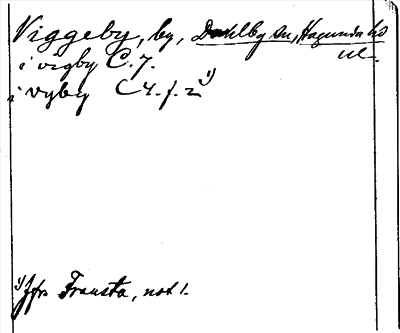 Viggeby, by, Dahlby sn, Hagunda hd
Ul.
i vigby C. 7.
i vyby C 4. f. 2 1)
1) Jfr Frausta, not 1.